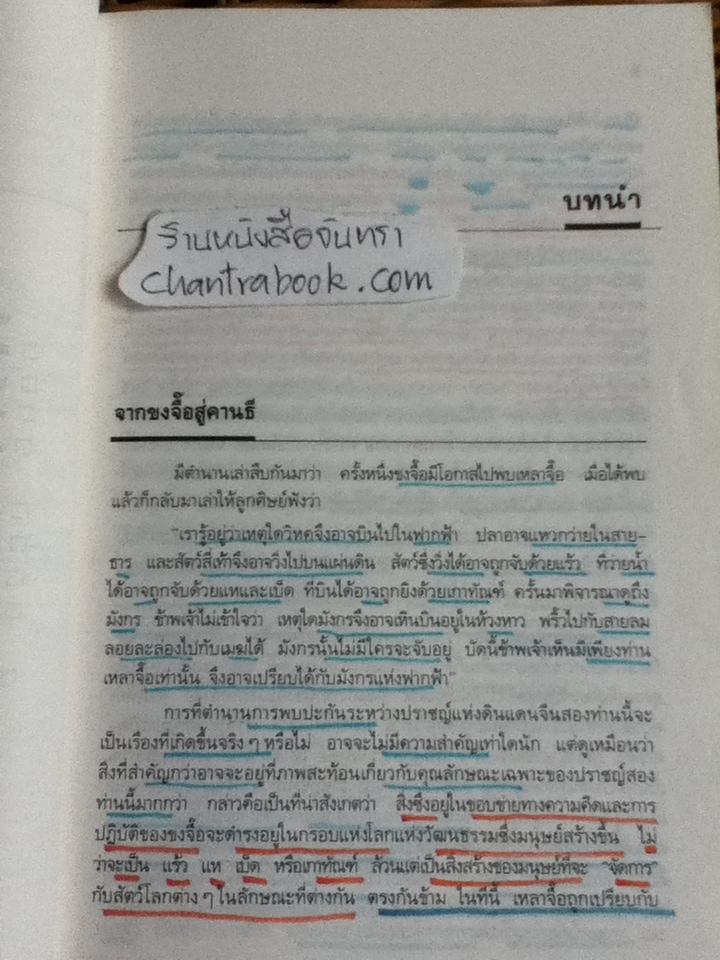 บทนำ
ร้านหนังสือจันทรา
chantrabook.com
จากขงจื๊อสู่คานธี
มีตำนานเล่าสืบกันมาว่า ครั้งหนึ่งขงจื๊อมีโอกาสไปพบเหลาจื๊อ เมื่อได้พบ
แล้วก็กลับมาเล่าให้ลูกศิษย์ฟังว่า
"เรารู้อยู่ว่าเหตุใดวิหคจึงอาจบินไปในฟากฟ้า ปลาอาจแหวกว่ายในสาย-
ธาร และสัตว์สี่เท้าจึงอาจวิ่งไปบนแผ่นดิน สัตว์ซึ่งวิ่งได้อาจถูกจับด้วยแร้ว ที่ว่ายน้ำ
ได้อาจถูกจับด้วยแหและเบ็ด ที่บินได้อาจถูกยิงด้วยเกาทัณฑ์ ครั้นมาพิจารณาดูถึง
มังกร ข้าพเจ้าไม่เข้าใจว่า เหตุใดมังกรจึงอาจเหินบินอยู่ในห้วงหาว พริ้วไปกับสายลม
ลอยละล่องไปกับเมฆได้ มังกรนั้นไม่มีใครจะจับอยู่ บัดนี้ข้าพเจ้าเห็นมีเพียงท่าน
เหลาจื๊อเท่านั้น จึงอาจเปรียบได้กับมังกรแห่งฟากฟ้า"
การที่ตำนานการพบปะกันระหว่างปราชญ์แห่งดินแดนจีนสองท่านนี้จะ
เป็นเรื่องที่เกิดขึ้นจริงๆ หรือไม่ อาจจะไม่มีความสำคัญเท่าใดนัก แต่ดูเหมือนว่า
สิ่งที่สำคัญกว่าอาจจะอยู่ที่ภาพสะท้อนเกี่ยวกับคุณลักษณะเฉพาะของปราชญ์สอง
ท่านนี้มากกว่า กล่าวคือเป็นที่น่าสังเกตว่า สิ่งซึ่งอยู่ในขอบข่ายทางความคิดและการ
ปฏิบัติของขงจื๊อจะดำรงอยู่ในกรอบแห่งโลกแห่งวัฒนธรรมซึ่งมนุษย์สร้างขึ้น ไม่
ว่าจะเป็น แร้ว แห เบ็ด หรือเกาทัณฑ์ ล้วนแต่เป็นสิ่งสร้างของมนุษย์ที่จะ "จัดการ"
กับสัตว์โลกต่างๆ ในลักษณะที่ต่างกัน ตรงกันข้าม ในที่นี้ เหลาจื๊อถูกเปรียบกับ